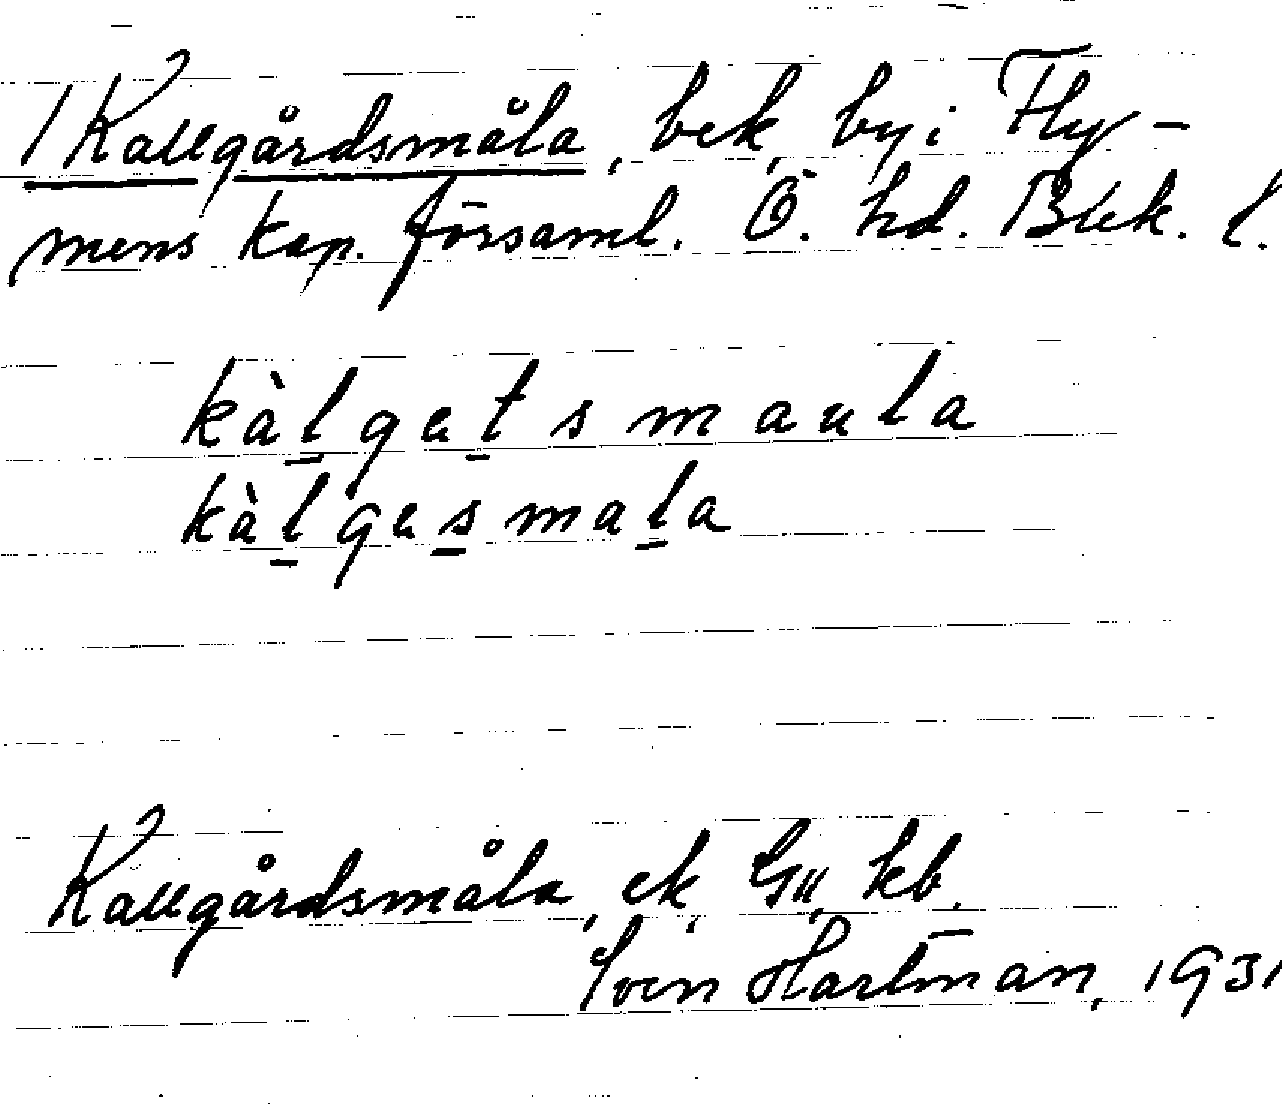 / Kallgårdsmåla, bek, by i Fly-
mens kap. församl. Ö. hd. Blek. l.
kàlgetsmaula
kàlgesmala
Kallgårdsmåla, ek, Gu, kb.
Sven Hartman, 1931